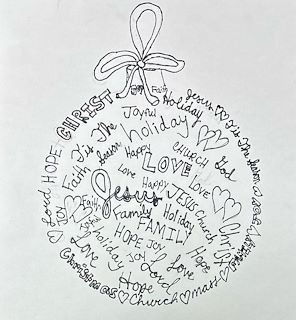 Faith
CHRIST
Joyful
Holiday
Jesus
Tis The Season
HOPE
Lord
JOY
Faith
Tis The
holiday
Savior
Happy
LOVE
CHURCH
God
Love
Happy
Love
Jesus
JESUS
Church
Faith
Family
Holiday
FAMILY
Christ
HOPE
JOY
Love
JOY
Lord
Love
Hope
Hope
Christmas
Church
mass